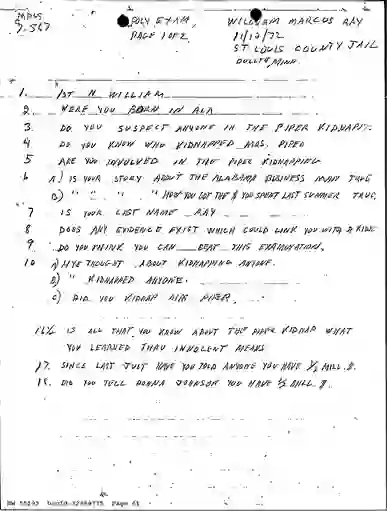 MPLS
7-567
POLY EXAM,
PAGE 1 OF 2
WILLIAM MARCUS RAY
11/12/72
ST LOUIS COUNTY JAIL
DULUTH, MINN.
1. 1ST N WILLIAM
2. WERE YOU BORN IN ALA
3 DO YOU SUSPECT ANYONE IN THE PIPER KIDNAPPING
4 DO YOU KNOW WHO KIDNAPPED MRS. PIPER
5 ARE YOU INVOLVED IN THE PIPER KIDNAPPING
6 A) IS YOUR STORY ABOUT THE ALABAMA BUSINESS MANY TRUE
B) " " " " HOW YOU GOT THE $ YOU SPENT LAST SUMMER TRUE
7 IS YOUR LAST NAME RAY
8 DOES ANY EVIDENCE EXIST WHICH COULD LINK YOU WITH A KIDN
9. DO YOU THINK YOU CAN BEAT THIS EXAMINATION.
10 A) HVE THOUGHT ABOUT KIDNAPPING ANYONE.
B) " KIDNAPPED ANYONE.
C) DID YOU KIDNAP MRS PIPER.
16½ IS ALL THAT YOU KNOW ABOUT THE PIPER KIDNAP WHAT
YOU LEARNED THRU INNOCENT MEANS
17. SINCE LAST JULY HAVE YOU TOLD ANYONE YOU HAVE ½ MILL. $.
18. DID YOU TELL DONNA JOHNSON YOU HAVE ½ MILL. $.
Page 61